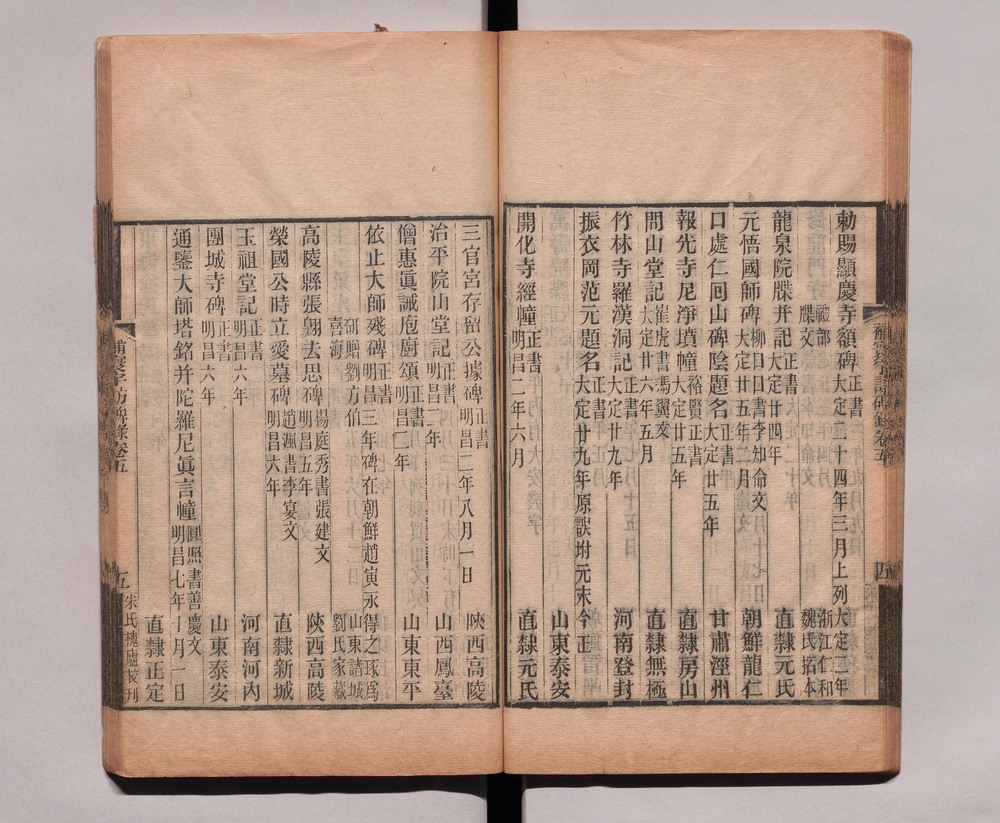 勅賜顯慶寺額碑正書大定二十四年三月上列大定三年
禮部牒文 浙江仁和魏氏拓本
龍泉院牒并記正書大定廿四年 直隸元氏
元悟國師碑柳口口書李知命文大定廿五年二月 朝鮮龍仁
口處仁回山碑陰題名正書大定廿五年 甘肅涇州
報先寺尼淨墳幢裕賢正書大定廿五年 直隸房山
問山堂記崔虎書馮翼文大定廿六年五月 直隸無極
竹林寺羅漢洞記正書大定廿九年 河南登封
振衣岡范元題名正書大定廿九年原誤坿元末今正 山東泰安
開化寺經幢正書明昌二年六月 直隸元氏
補寰宇訪碑錄卷五 四
三官宮存留公據碑正書明昌二年八月一日 陝西高陵
治平院山堂記正書明昌二年 山西鳳臺
僧惠眞誡庖廚頌正書明昌二年 山東東平
依止大師殘碑正書明昌三年碑在朝鮮趙寅永得之琢爲
硯贈劉方伯喜海 山東諸城劉氏家藏
高陵縣張翱去思碑楊庭秀書張建文明昌五年 陝西高陵
榮國公時立愛墓碑趙渢書李宴文明昌六年 直隸新城
玉祖堂記正書明昌六年 河南河內
團城寺碑正書明昌六年 山東泰安
通鑒大師塔銘并陀羅尼眞言幢圓照書善慶文明昌七年十月一日
直隸正定
補寰宇訪碑錄卷五 五 朱氏槐廬校刊